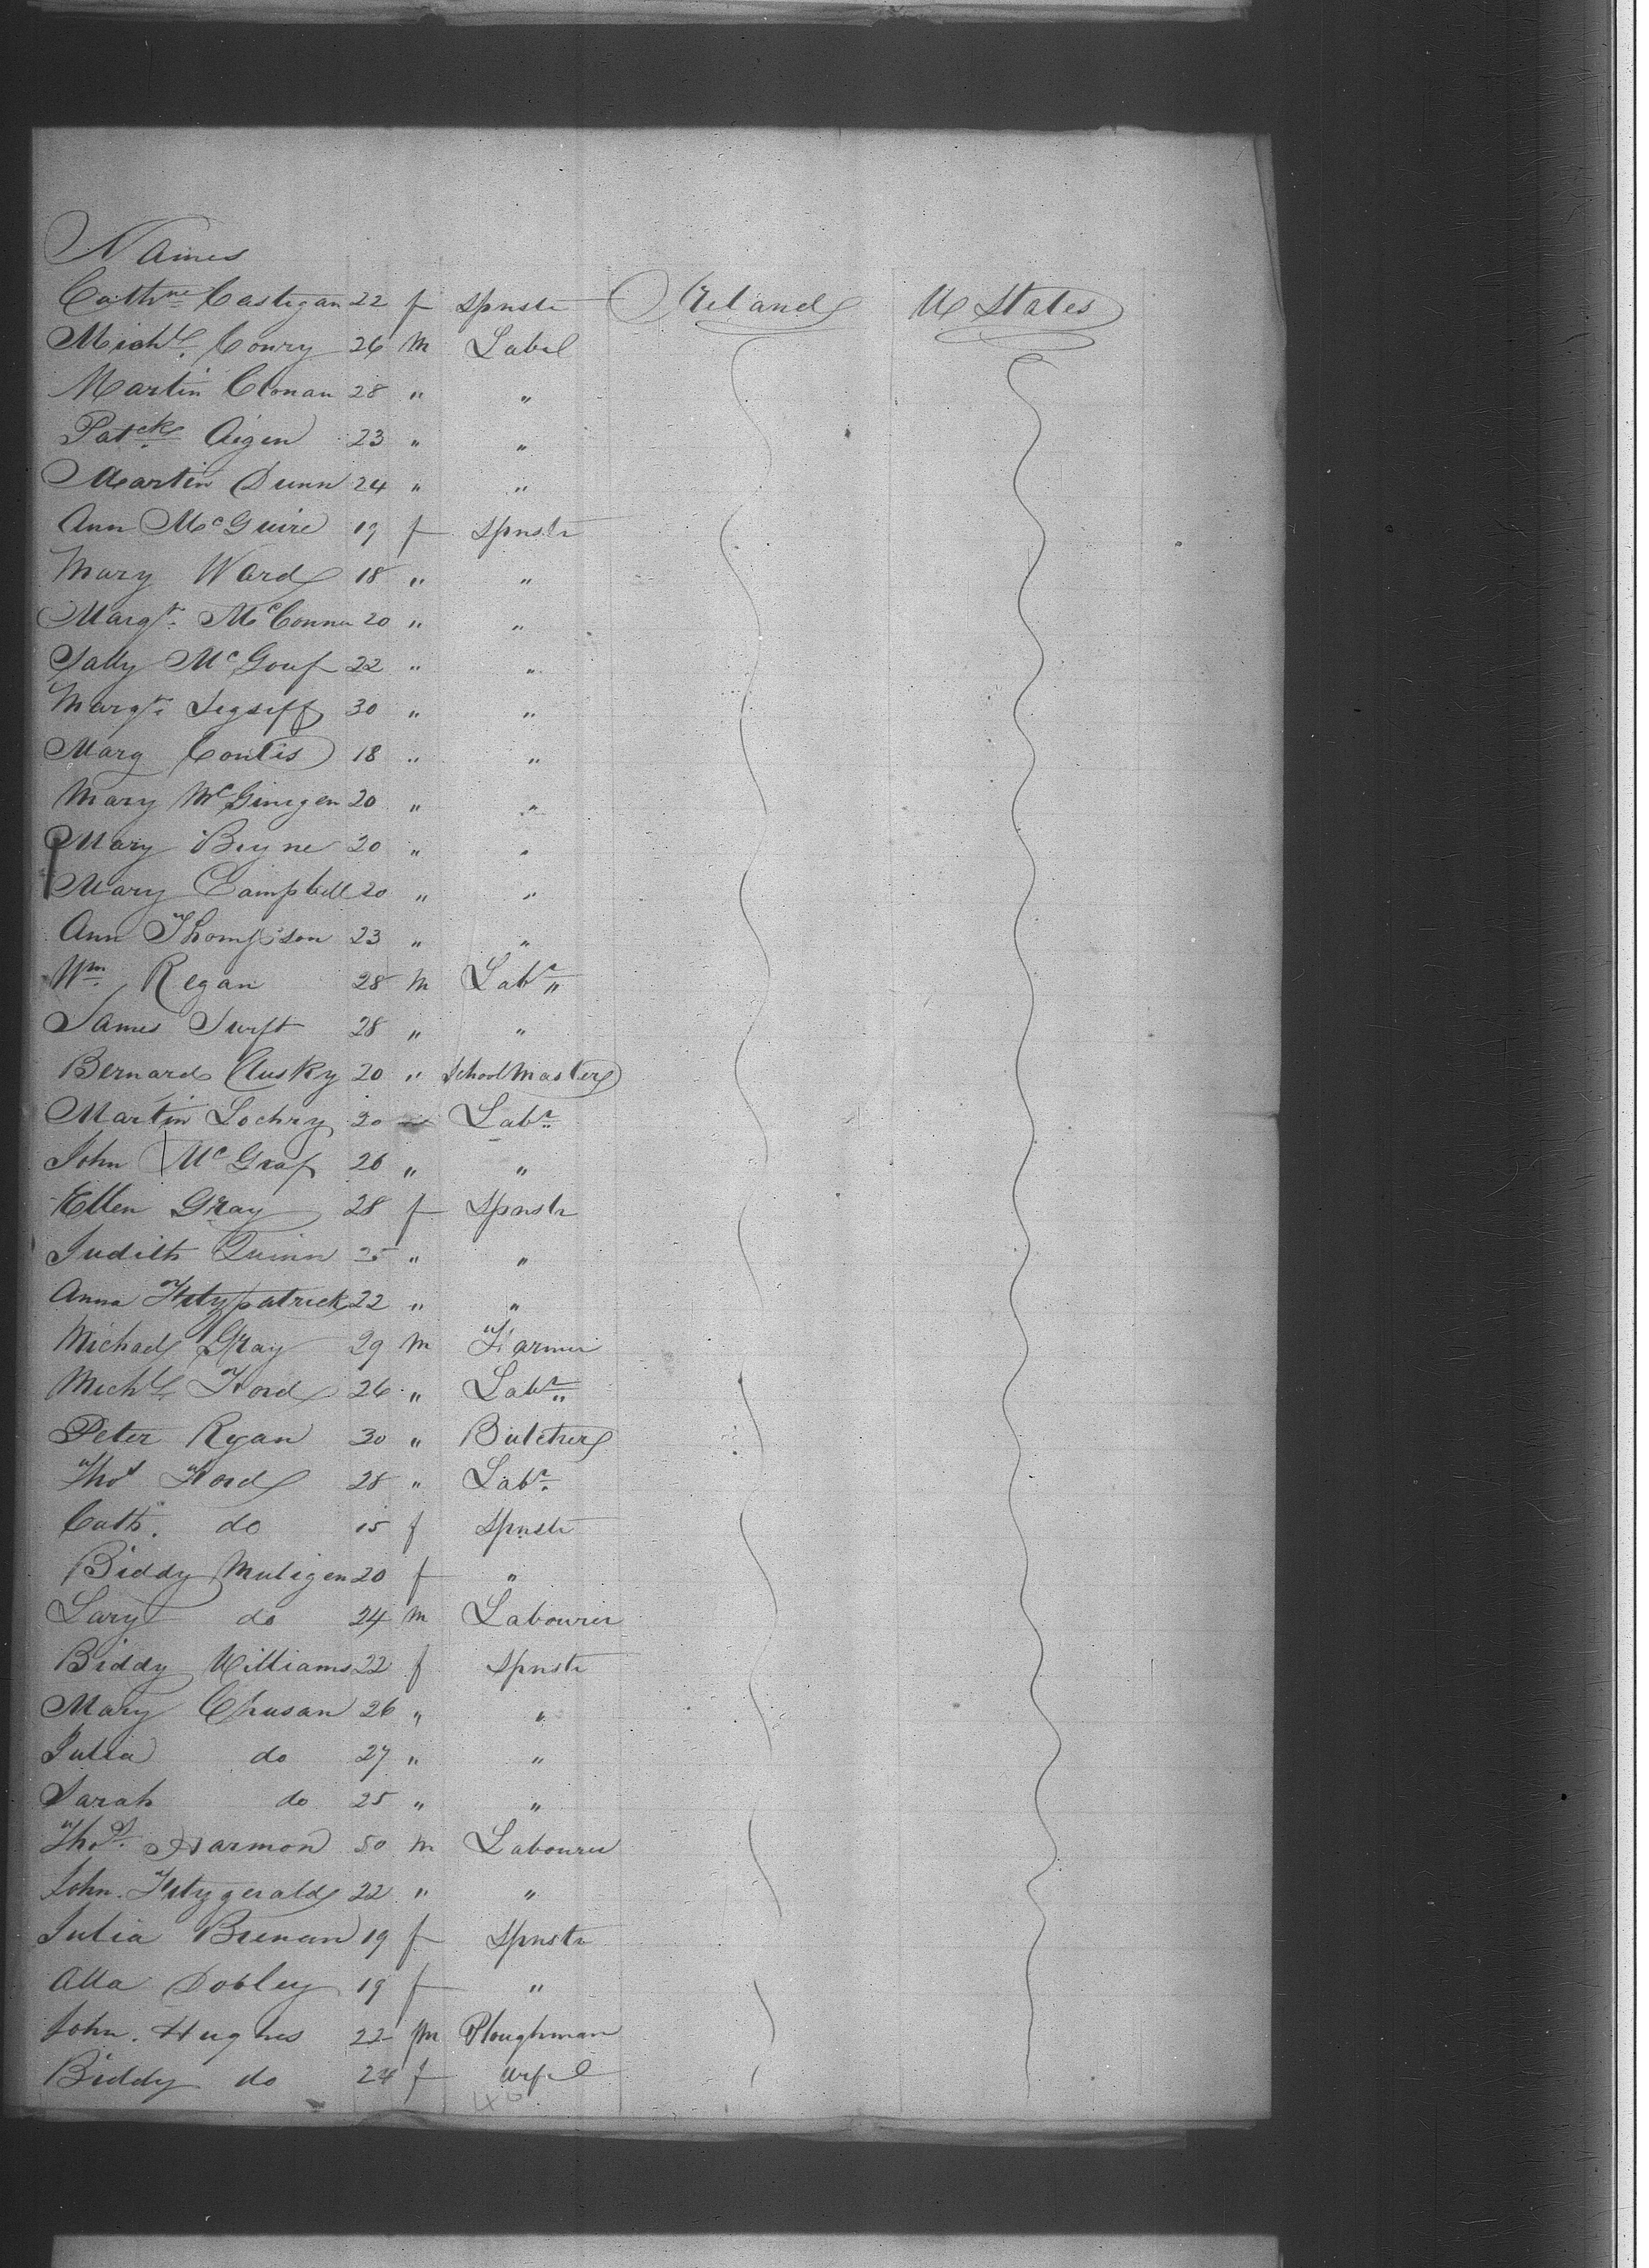 Names
Cathne Costigan 22 f Spnstr Ireland U States
Michl. Conry 26 m Labl
Martin Cronan 28 " "
Patck Aigen 23 " "
Martin Dunn 24 " "
Ann McGuire 19 f Spnstr
Mary Ward 18 " "
Margt. McConner 20 " "
Sally McGouf 22 " "
Margt. 30 " "
Marg Contis 18 " "
Mary McGinigen 20 " "
Mary Beyne 20 " "
Mary Campbell 20 " "
Ann Thompson 23 " "
Wm. Regan 28 m Labr "
James Swift 28 " "
Bernard Cusky 20 " School Master
Martin Lochry 20 " Labr
John McGraf 26 " "
Ellen Gray 28 f Spnstr
Judith Quinn 25 " "
Anna Fitzpatrick 22 " "
Michael Gray 29 m Farmer
Michl Ford 26 " Labr "
Peter Ryan 30 " Butcher
Thos Ford 28 " Labr.
Cath. do 15 f Spnstr
Biddy Muligen 20 f "
Lary do 24 m Labourer
Biddy Williams 22 f Spnstr
Mary Chusan 26 " "
Julia do 27 " "
Sarah do 25 " "
Thos. Harmon 50 m Labourer
John. Fitzgerald 22 " "
Julia Brenan 19 f Spnstr
Alla Dobley 19 f "
John. Hughes 22 m Ploughman
Biddy do 24 f Wife
40